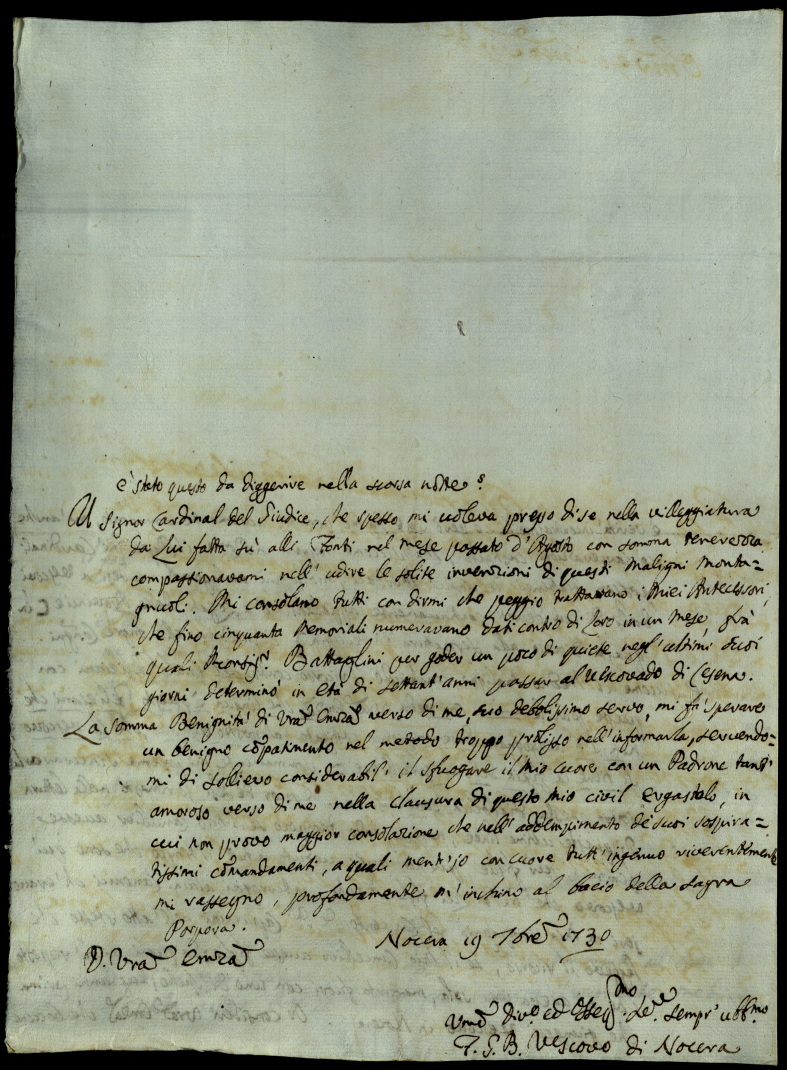 è stato questo da diggerire nella scorsa notte.
Il Signor Cardinal del Giudice, che spesso mi voleva presso di se nella villeggiatura
da Lui fatta sù alli Fonti nel mese passato d'Agosto con somma tenerezza
compassionavami nell'udire le solite invenzioni di questi Maligni Monta=
gnuoli. Mi consolano tutti con dirmi che peggio trattavano i Miei Antecessori,
che fino cinquanta Memoriali numeravano dati contro di Loro in un Mese, frà
quali Monsigr. Battaglini per goder un poco di quiete negl'ultimi suoi
giorni determinò in età di settant'anni passar al Vescovado di Cesena.
La somma Benignità di Vrã Emzã verso di me, suo debolissimo servo, mi fà sperare
un benigno cõpatimento nel metodo troppo prolisso nell'informarla, servendo=
mi di sollievo considerabil' il sfuogare il mio cuore con un Padrone tant'
amoroso verso di me nella clausura di questo mio civil ergastolo, in
cui non provo maggior consolazione che nell'addempimento de suoi sospira=
tissimi cõmandamenti, a quali mentr'io con cuore tutt'ingenuo riverentement
mi rassegno, profondamente m'inchino al bacio della Sagra
Porpora.
D. Vrã Emzã
Nocera 19 7brẽ 1730
Umõ Divo. ed Ossemo. Sere. sempr' obbmo
F. G. B. Vescovo di Nocera